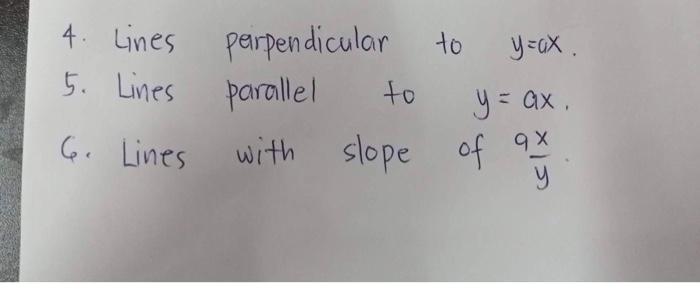 4. Lines perpendicular to y=ax.
5. Lines parallel to y = ax.
6. Lines with slope of ax/y.